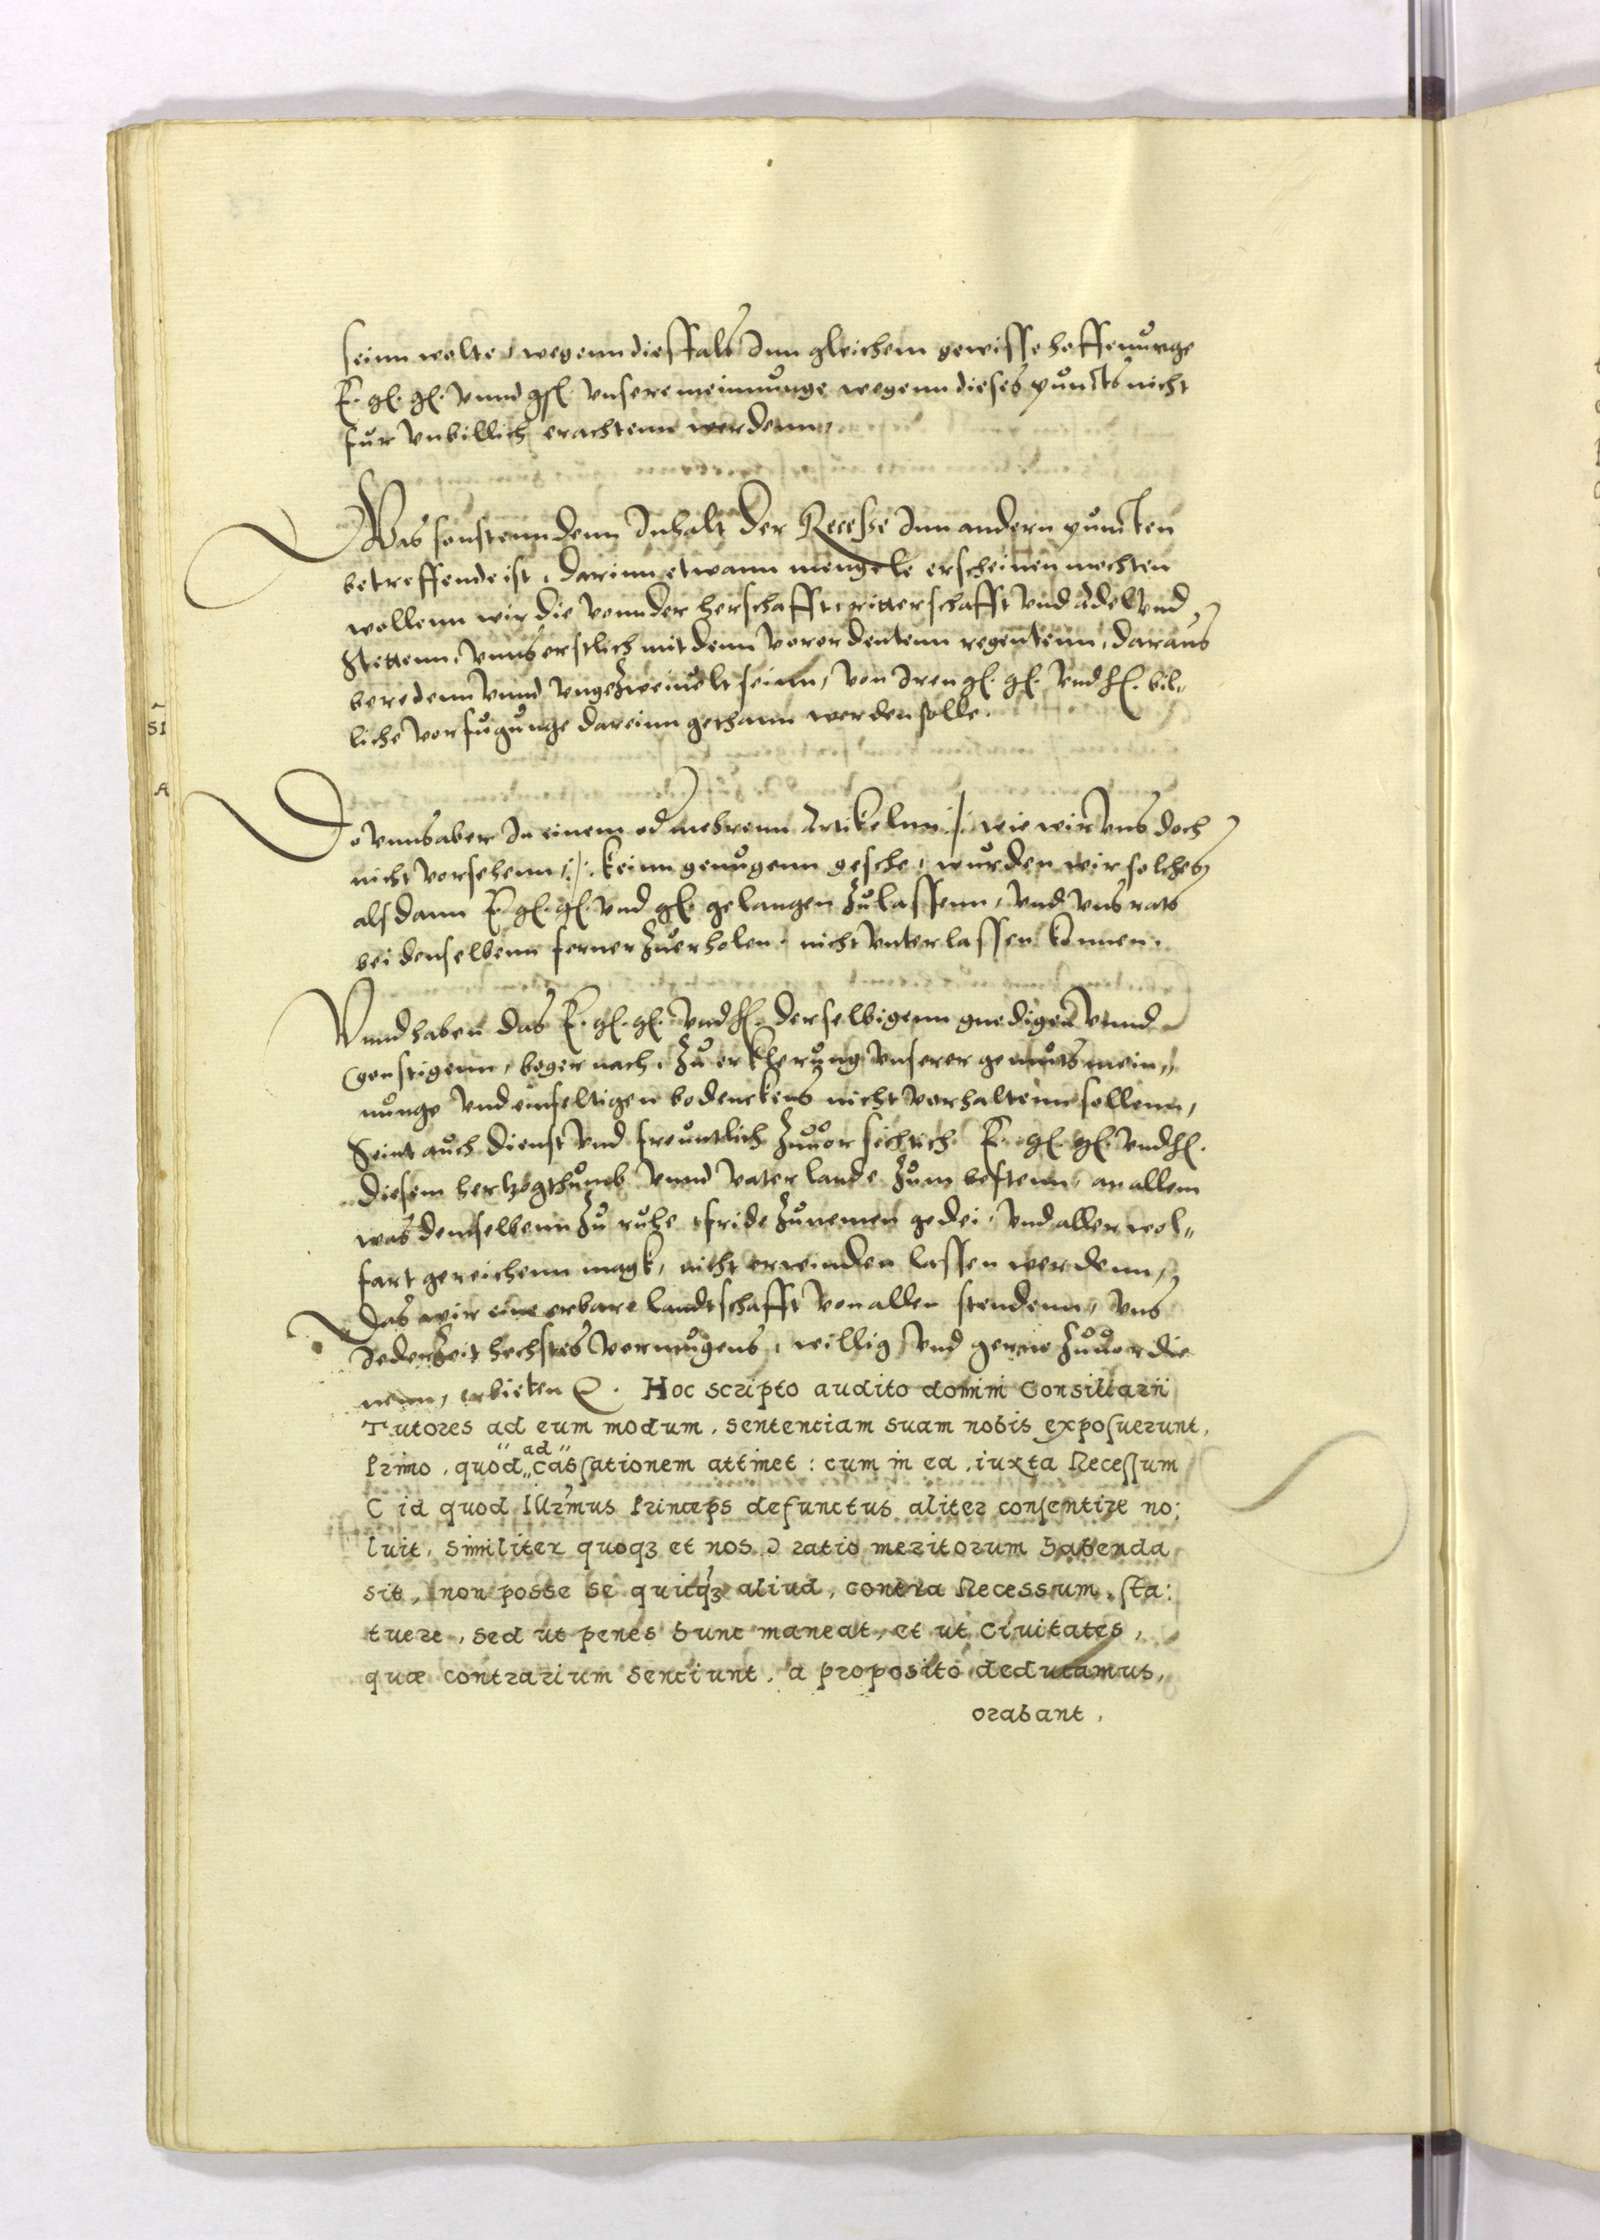 seinn wolte, wegenn diesfals Inn gleichem gewisse hoffenunge
E. gl. gl. vnnd gl. vnsere meinnunge wegenn dieses puncts nicht
fur vnbillich erachtenn werdenn,
Was sonstenn denn Inhalt der Recesse Inn andern puncten
betreffende ist, darinn etwann mengele erscheinen mochten
wollenn wir die vonn der herschafft ritterschafft vnd Adel vnd
Stettenn, vnns erstlich mit denn verordentenn regentenn, daraus
beredenn vnnd vngezweiuelt seinn, von Iren gl. gl. vnd gl. bil„
liche vorfugunge dareinn gethann werden solle.
51
A
Do vnns aber In einem od mehrenn Artikelnn ./. wie wir vns doch
nicht vorsehenn ./. keinn genugenn gesche, wurden wir solches
alsdann E. gl. gl. vnd gl. gelangen zulassenn, vnd vns rats
bei denselbenn ferner zuerholen, nicht vnterlassen konnen.
Vnnd haben das E. gl. gl. vnd gl. derselbigenn gnedigen vnnd
gonstigenn, beger nach, zu erklerung vnserer gemuts mein„
nunge vnd einfeltigen bedenckens nicht verhaltenn sollenn,
Seint auch dienst vnd freuntlich zuuorsichtich E. gl. gl. vnd gl.
diesem hertzogthumb vnnd vaterlande zum bestenn, an allem
was demselbenn zu ruhe, fride zunemen gedei, vnd aller wol„
fart gereichenn magk, nicht erwinden lassen werdenn,
Das wir eine erbare landtschafft von allen stendenn, vns
Jederzeit hechstes vermugens, willig vnd gerne zuuordie
nenn, erbieten &. Hoc scripto audito domini Consiliarii
Tutores ad eum modum, sentenciam suam nobis exposuerunt,
Primo, quod „ad„ cassationem attinet: cum in ea, iuxta Recessum
C id quod Illrmus Princeps defunctus aliter consentire no:
luit, similiter quoqȝ et nos ratio meritorum habenda
sit, non posse se quicqȝ aliud, contra Recessum, sta:
tuere, sed ut penes hunc maneat, et ut Ciuitates,
quæ contrarium senciunt, a proposito deducamus,
orabant,